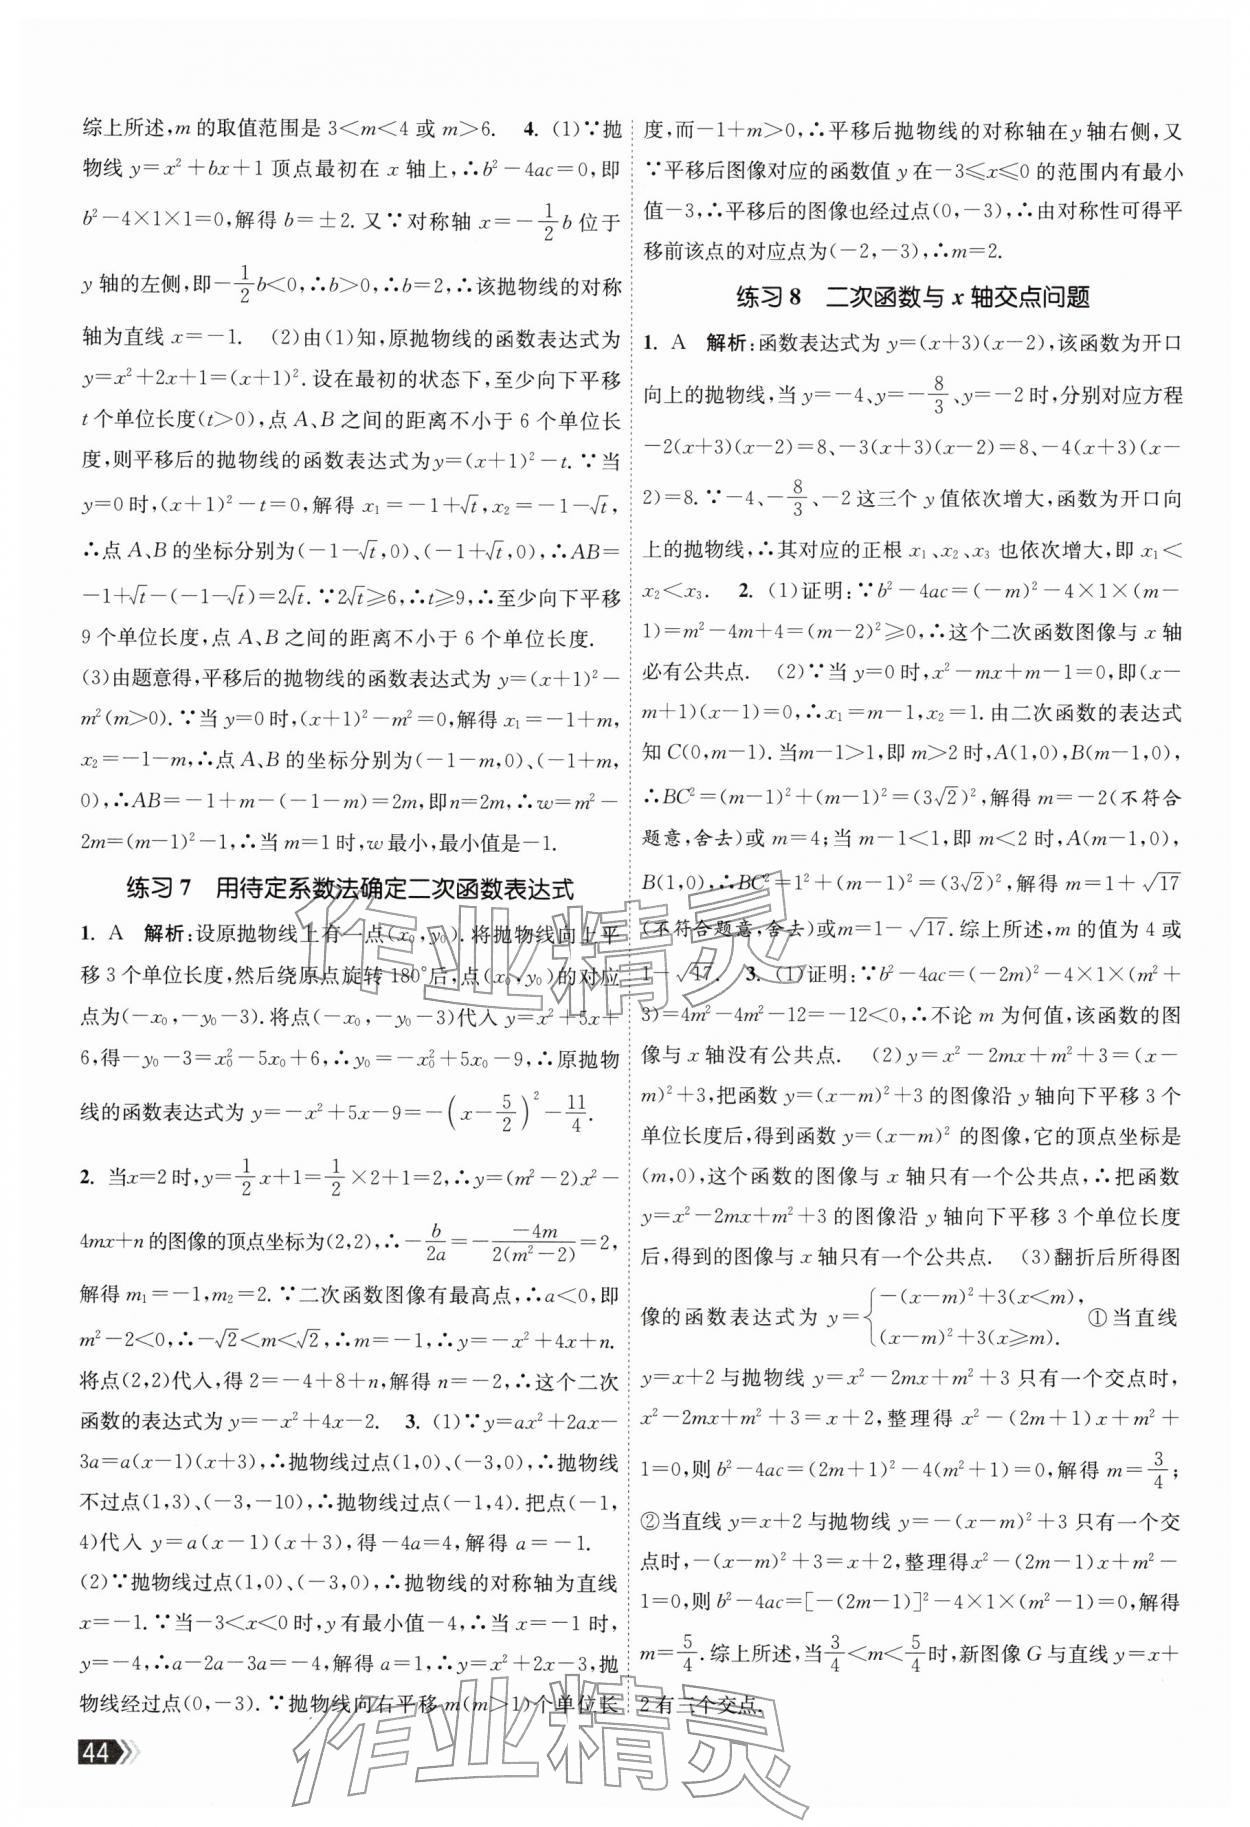 综上所述,m 的取值范围是 3<m<4 或 m>6. 4. (1)∵抛
物线 y=x²+bx+1 顶点最初在 x 轴上,∴b²-4ac=0,即
b²-4×1×1=0,解得 b=±2. 又∵对称轴 x=-1/2 b 位于
y 轴的左侧,即-1/2 b<0,∴b>0,∴b=2,∴该抛物线的对称
轴为直线 x=-1. (2)由(1)知,原抛物线的函数表达式为
y=x²+2x+1=(x+1)². 设在最初的状态下,至少向下平移
t 个单位长度(t>0),点 A、B 之间的距离不小于 6 个单位长
度,则平移后的抛物线的函数表达式为y=(x+1)²-t. ∵当
y=0 时,(x+1)²-t=0,解得 x₁=-1+√t,x₂=-1-√t,
∴点 A、B 的坐标分别为(-1-√t,0)、(-1+√t,0),∴AB=
-1+√t-(-1-√t)=2√t. ∵2√t≥6,∴t≥9,∴至少向下平移
9 个单位长度,点 A、B 之间的距离不小于 6 个单位长度.
(3)由题意得,平移后的抛物线的函数表达式为 y=(x+1)²-
m²(m>0). ∵当 y=0时,(x+1)²-m²=0,解得 x₁=-1+m,
x₂=-1-m,∴点 A、B 的坐标分别为(-1-m,0)、(-1+m,
0),∴AB=-1+m-(-1-m)=2m,即n=2m,∴w=m²-
2m=(m-1)²-1,∴当 m=1 时,w 最小,最小值是-1.
练习 7 用待定系数法确定二次函数表达式
1. A 解析:设原抛物线上有一点(x₀,y₀). 将抛物线向上平
移 3 个单位长度,然后绕原点旋转 180°后,点(x₀,y₀)的对应
点为(-x₀,-y₀-3). 将点(-x₀,-y₀-3)代入 y=x²+5x+
6,得-y₀-3=x₀²-5x₀+6,∴y₀=-x₀²+5x₀-9,∴原抛物
线的函数表达式为 y=-x²+5x-9=-(x-5/2)²-11/4.
2. 当x=2 时,y=1/2 x+1=1/2×2+1=2,∴y=(m²-2)x²-
4mx+n 的图像的顶点坐标为(2,2),∴-b/2a=-(-4m)/(2(m²-2))=2,
解得 m₁=-1,m₂=2. ∵二次函数图像有最高点,∴a<0,即
m²-2<0,∴-√2<m<√2,∴m=-1,∴y=-x²+4x+n.
将点(2,2)代入,得 2=-4+8+n,解得 n=-2,∴这个二次
函数的表达式为 y=-x²+4x-2. 3. (1)∵y=ax²+2ax-
3a=a(x-1)(x+3),∴抛物线过点(1,0)、(-3,0),∴抛物线
不过点(1,3)、(-3,-10),∴抛物线过点(-1,4). 把点(-1,
4)代入 y=a(x-1)(x+3),得-4a=4,解得 a=-1.
(2)∵抛物线过点(1,0)、(-3,0),∴抛物线的对称轴为直线
x=-1. ∵当-3<x<0 时,y 有最小值-4,∴当 x=-1 时,
y=-4,∴a-2a-3a=-4,解得 a=1,∴y=x²+2x-3,抛
物线经过点(0,-3). ∵抛物线向右平移 m(m>1)个单位长
44
度,而-1+m>0,∴平移后抛物线的对称轴在y 轴右侧,又
∵平移后图像对应的函数值 y 在-3≤x≤0 的范围内有最小
值-3,∴平移后的图像也经过点(0,-3),∴由对称性可得平
移前该点的对应点为(-2,-3),∴m=2.
练习 8 二次函数与 x 轴交点问题
1. A 解析:函数表达式为 y=(x+3)(x-2),该函数为开口
向上的抛物线,当 y=-4、y=-8/3、y=-2 时,分别对应方程
-2(x+3)(x-2)=8、-3(x+3)(x-2)=8、-4(x+3)(x-
2)=8. ∵-4、-8/3、-2 这三个 y 值依次增大,函数为开口向
上的抛物线,∴其对应的正根 x₁、x₂、x₃ 也依次增大,即 x₁<
x₂<x₃. 2. (1)证明:∵b²-4ac=(-m)²-4×1×(m-
1)=m²-4m+4=(m-2)²≥0,∴这个二次函数图像与 x 轴
必有公共点. (2)∵当 y=0 时,x²-mx+m-1=0,即(x-
m+1)(x-1)=0,∴x₁=m-1,x₂=1. 由二次函数的表达式
知 C(0,m-1). 当m-1>1,即 m>2 时,A(1,0),B(m-1,0),
∴BC²=(m-1)²+(m-1)²=(3√2)²,解得 m=-2(不符合
题意,舍去)或 m=4;当 m-1<1,即 m<2 时,A(m-1,0),
B(1,0),∴BC²=1²+(m-1)²=(3√2)²,解得 m=1+√17
(不符合题意,舍去)或m=1-√17. 综上所述,m 的值为 4 或
1-√17. 3. (1)证明:∵b²-4ac=(-2m)²-4×1×(m²+
3)=4m²-4m²-12=-12<0,∴不论 m 为何值,该函数的图
像与 x 轴没有公共点. (2)y=x²-2mx+m²+3=(x-
m)²+3,把函数 y=(x-m)²+3 的图像沿 y轴向下平移 3 个
单位长度后,得到函数 y=(x-m)² 的图像,它的顶点坐标是
(m,0),这个函数的图像与 x 轴只有一个公共点,∴把函数
y=x²-2mx+m²+3 的图像沿 y 轴向下平移 3 个单位长度
后,得到的图像与 x 轴只有一个公共点. (3)翻折后所得图
像的函数表达式为 y={-(x-m)²+3(x<m),(x-m)²+3(x≥m). ①当直线
y=x+2 与抛物线 y=x²-2mx+m²+3 只有一个交点时,
x²-2mx+m²+3=x+2,整理得 x²-(2m+1)x+m²+
1=0,则 b²-4ac=(2m+1)²-4(m²+1)=0,解得 m=3/4;
②当直线 y=x+2 与抛物线 y=-(x-m)²+3 只有一个交
点时,-(x-m)²+3=x+2,整理得x²-(2m-1)x+m²-
1=0,则 b²-4ac=[-(2m-1)]²-4×1×(m²-1)=0,解得
m=5/4. 综上所述,当3/4<m<5/4时,新图像 G 与直线 y=x+
2 有三个交点.
作业精灵
作业精灵